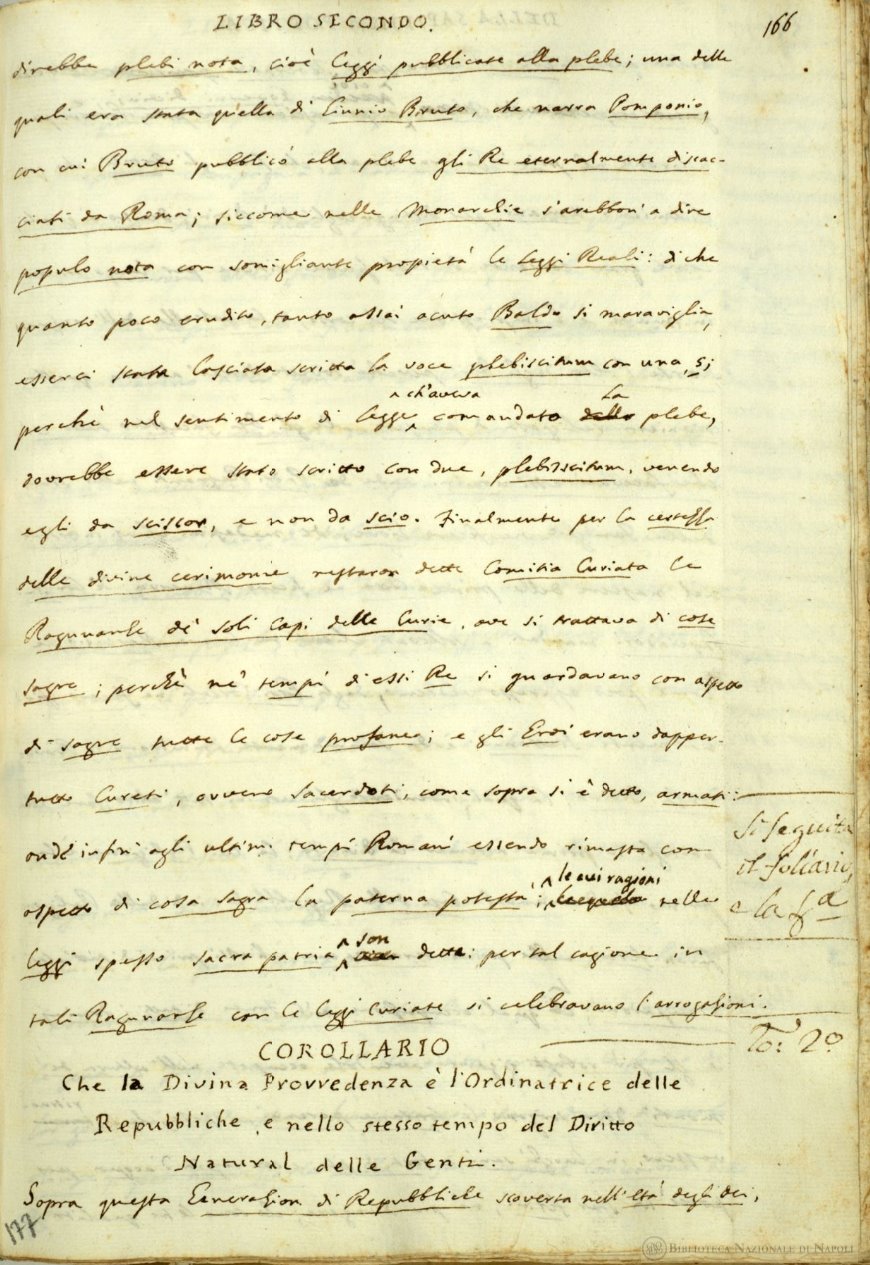 LIBRO SECONDO.
166
direbbe plebi nota, cioè leggi pubblicate alla plebe; una delle
quali era stata quella di Giunio Bruto, che narra Pomponio,
con cui Bruto pubblicò alla plebe gli Re eternalmente discac-
ciati da Roma; siccome nelle Monarchie s'arebbon' a dire
populo nota con somigliante propietà le leggi Reali: di che
quanto poco erudito, tanto assai acuto Baldo si maraviglia,
esserci stata lasciata scritta la voce plebiscitum con una, s;
^ ch'aveva La
perchè nel sentimento di legge ^ comandato dello plebe,
dovrebbe essere stato scritto con due, plebisscitum, venendo
egli da sciscor, e non da scio. Finalmente per la certezza
delle divine cerimonie restaron dette Comitia Curiata le
Ragunanze de' soli Capi delle Curie, ove si trattava di cose
sagre; perchè ne' tempi di essi Re si guardavano con aspetto
di sagre tutte le cose profane; e gli Eroi erano dapper-
tutto Cureti, ovvero Sacerdoti, come sopra si è detto, armati:
ond' infin' agli ultimi tempi Romani essendo rimasta con
^ le cui ragioni
aspetto di cosa sagra la paterna potestà; ^ nelle
^ son
leggi spesso sacra patria ^ dette: per tal cagione in
tali Ragunanze con le leggi Curiate si celebravano l'arrogazioni.
Si seguita
il foliario,
e la
To: 2º
COROLLARIO
Che la Divina Provvedenza è l'Ordinatrice delle
Repubbliche, e nello stesso tempo del Diritto
Natural delle Genti.
Sopra questa Generazion di Repubbliche scoverta nell'età degli dei,
177
BIBLIOTECA NAZIONALE DI NAPOLI